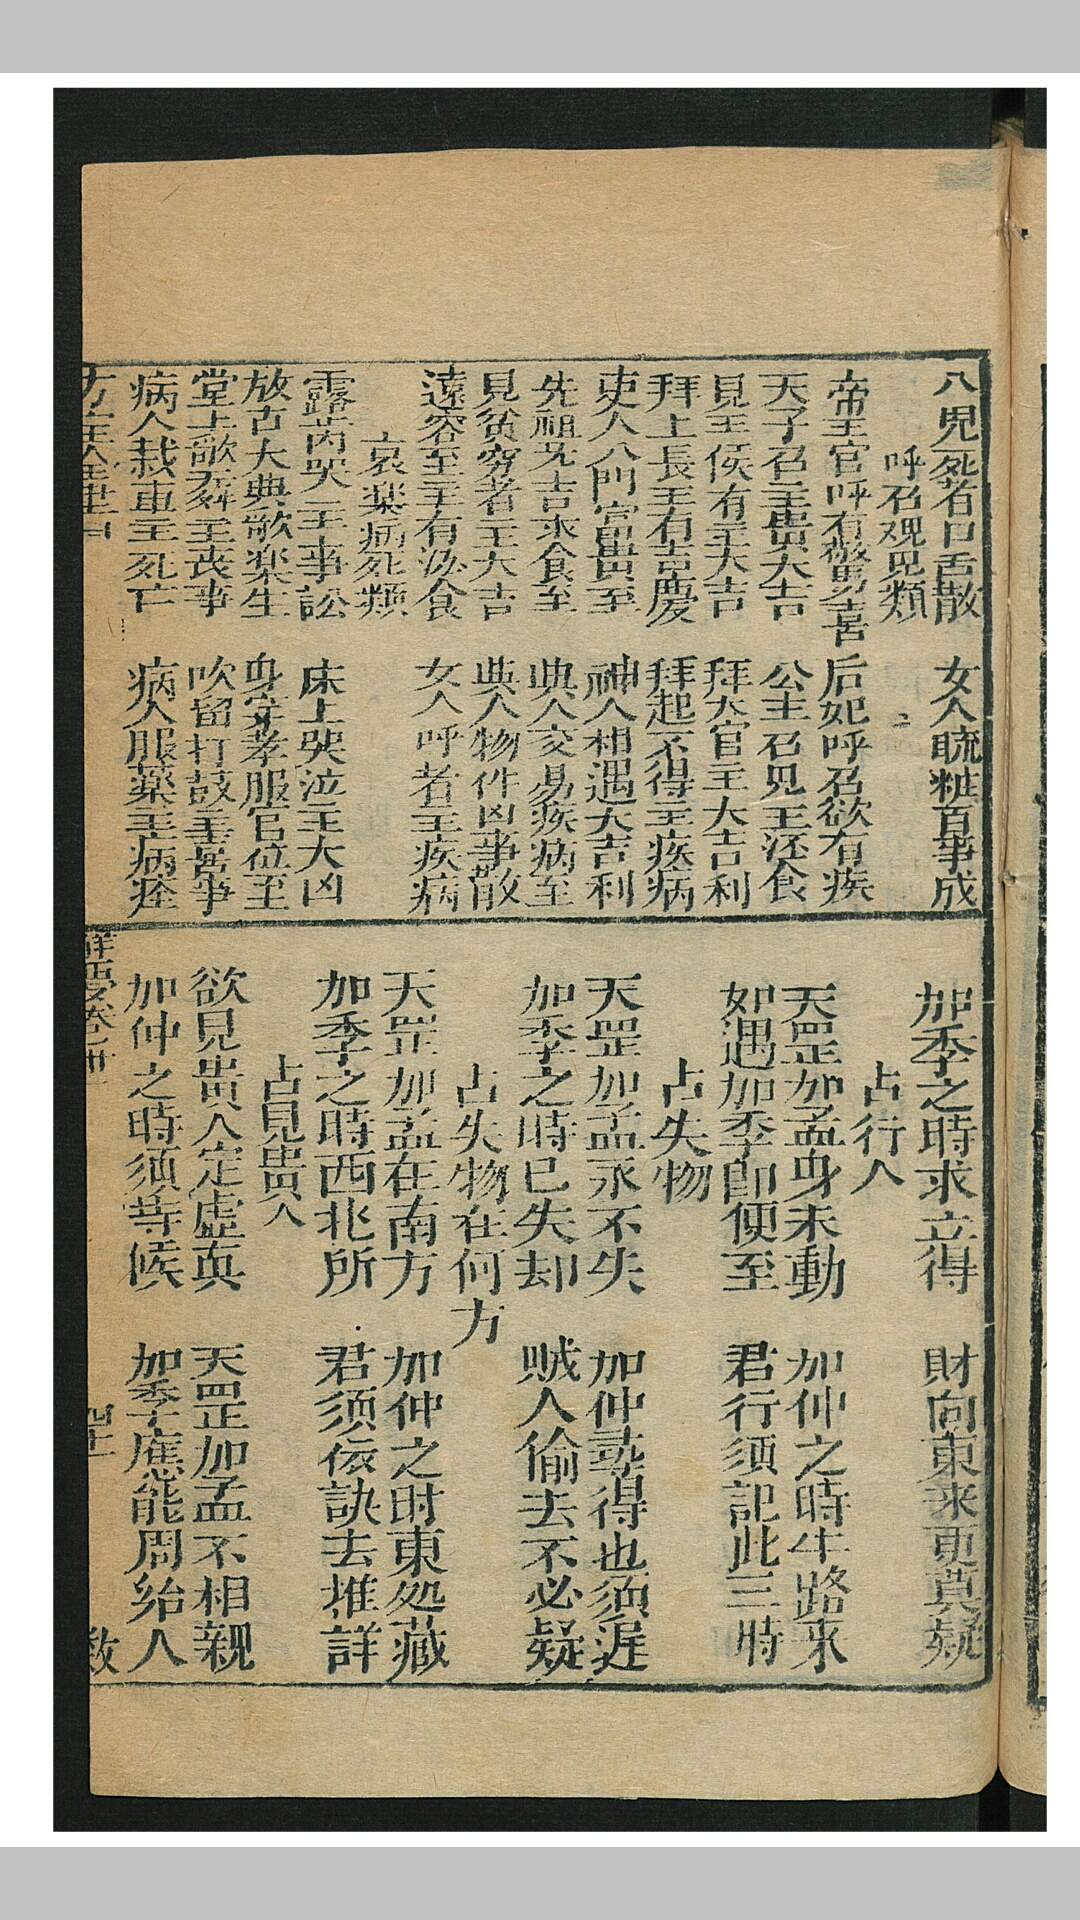 八見死者口舌散　女人梳粧百事成
呼召覌見類
帝王官呼有驚喜　后妃呼召欲有疾
天子召主贵大吉　公主召見主酒食
見王侯有主大吉　拜大官主大吉利
拜上長主有吉慶　拜起不得主疾病
吏人入門富貴至　神人相遇大吉利
先祖先吉求食至　典人交易疾病至
見貧穷者主大吉　典人物件凶事散
遠客至主有酒食　女人呼者主疾病
哀楽病死類
露哭主事訟　床上哭泣主大凶
放古大典歌楽生　身穿孝服官位至
堂上歌舞主丧事　吹留打鼓主喜事
病人裁車主死亡　病人服藥主病痊
加季之時求立得　財向東来更莫疑
占行人
天罡加孟身未動　加仲之時半路来
如遇加季即便至　君行須記此三時
占失物
天罡加孟永不失　加仲尋得也須遲
加季之時已失却　賊人偷去不必疑
占失物在何方
天罡加孟在南方　加仲之时東処藏
加季之時西北所　君須依訣去推詳
占見貴人
欲見貴人定虛真　天罡加孟不相親
加仲之時須等候　加季應能周給人